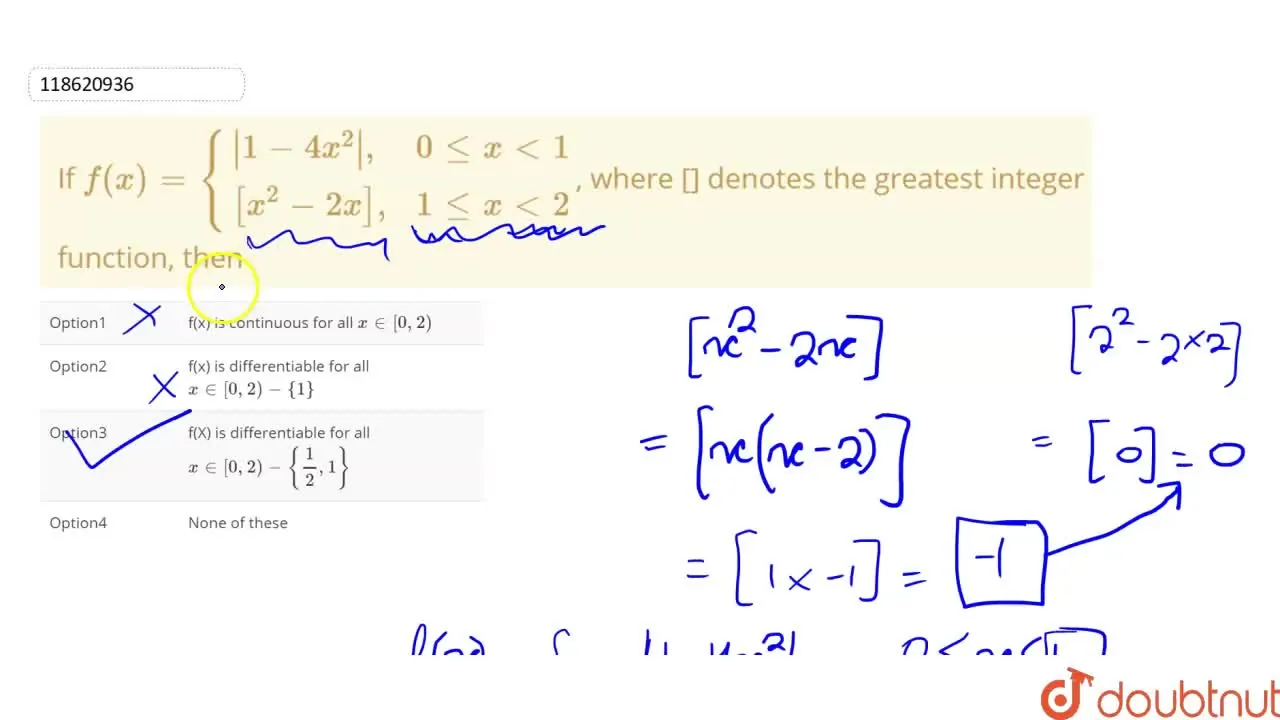 118620936
If f(x) = { |1 − 4x²|, 0 ≤ x < 1
[x² − 2x], 1 ≤ x < 2 , where [] denotes the greatest integer
function, then
Option1 f(x) is continuous for all x ∈ [0, 2)
Option2 f(x) is differentiable for all
x ∈ [0, 2) − {1}
Option3 f(X) is differentiable for all
x ∈ [0, 2) − {1/2, 1}
Option4 None of these
[x² − 2x]
= [x(x − 2)]
= [1 × −1] = −1
[2² − 2×2]
= [0] = 0
doubtnut